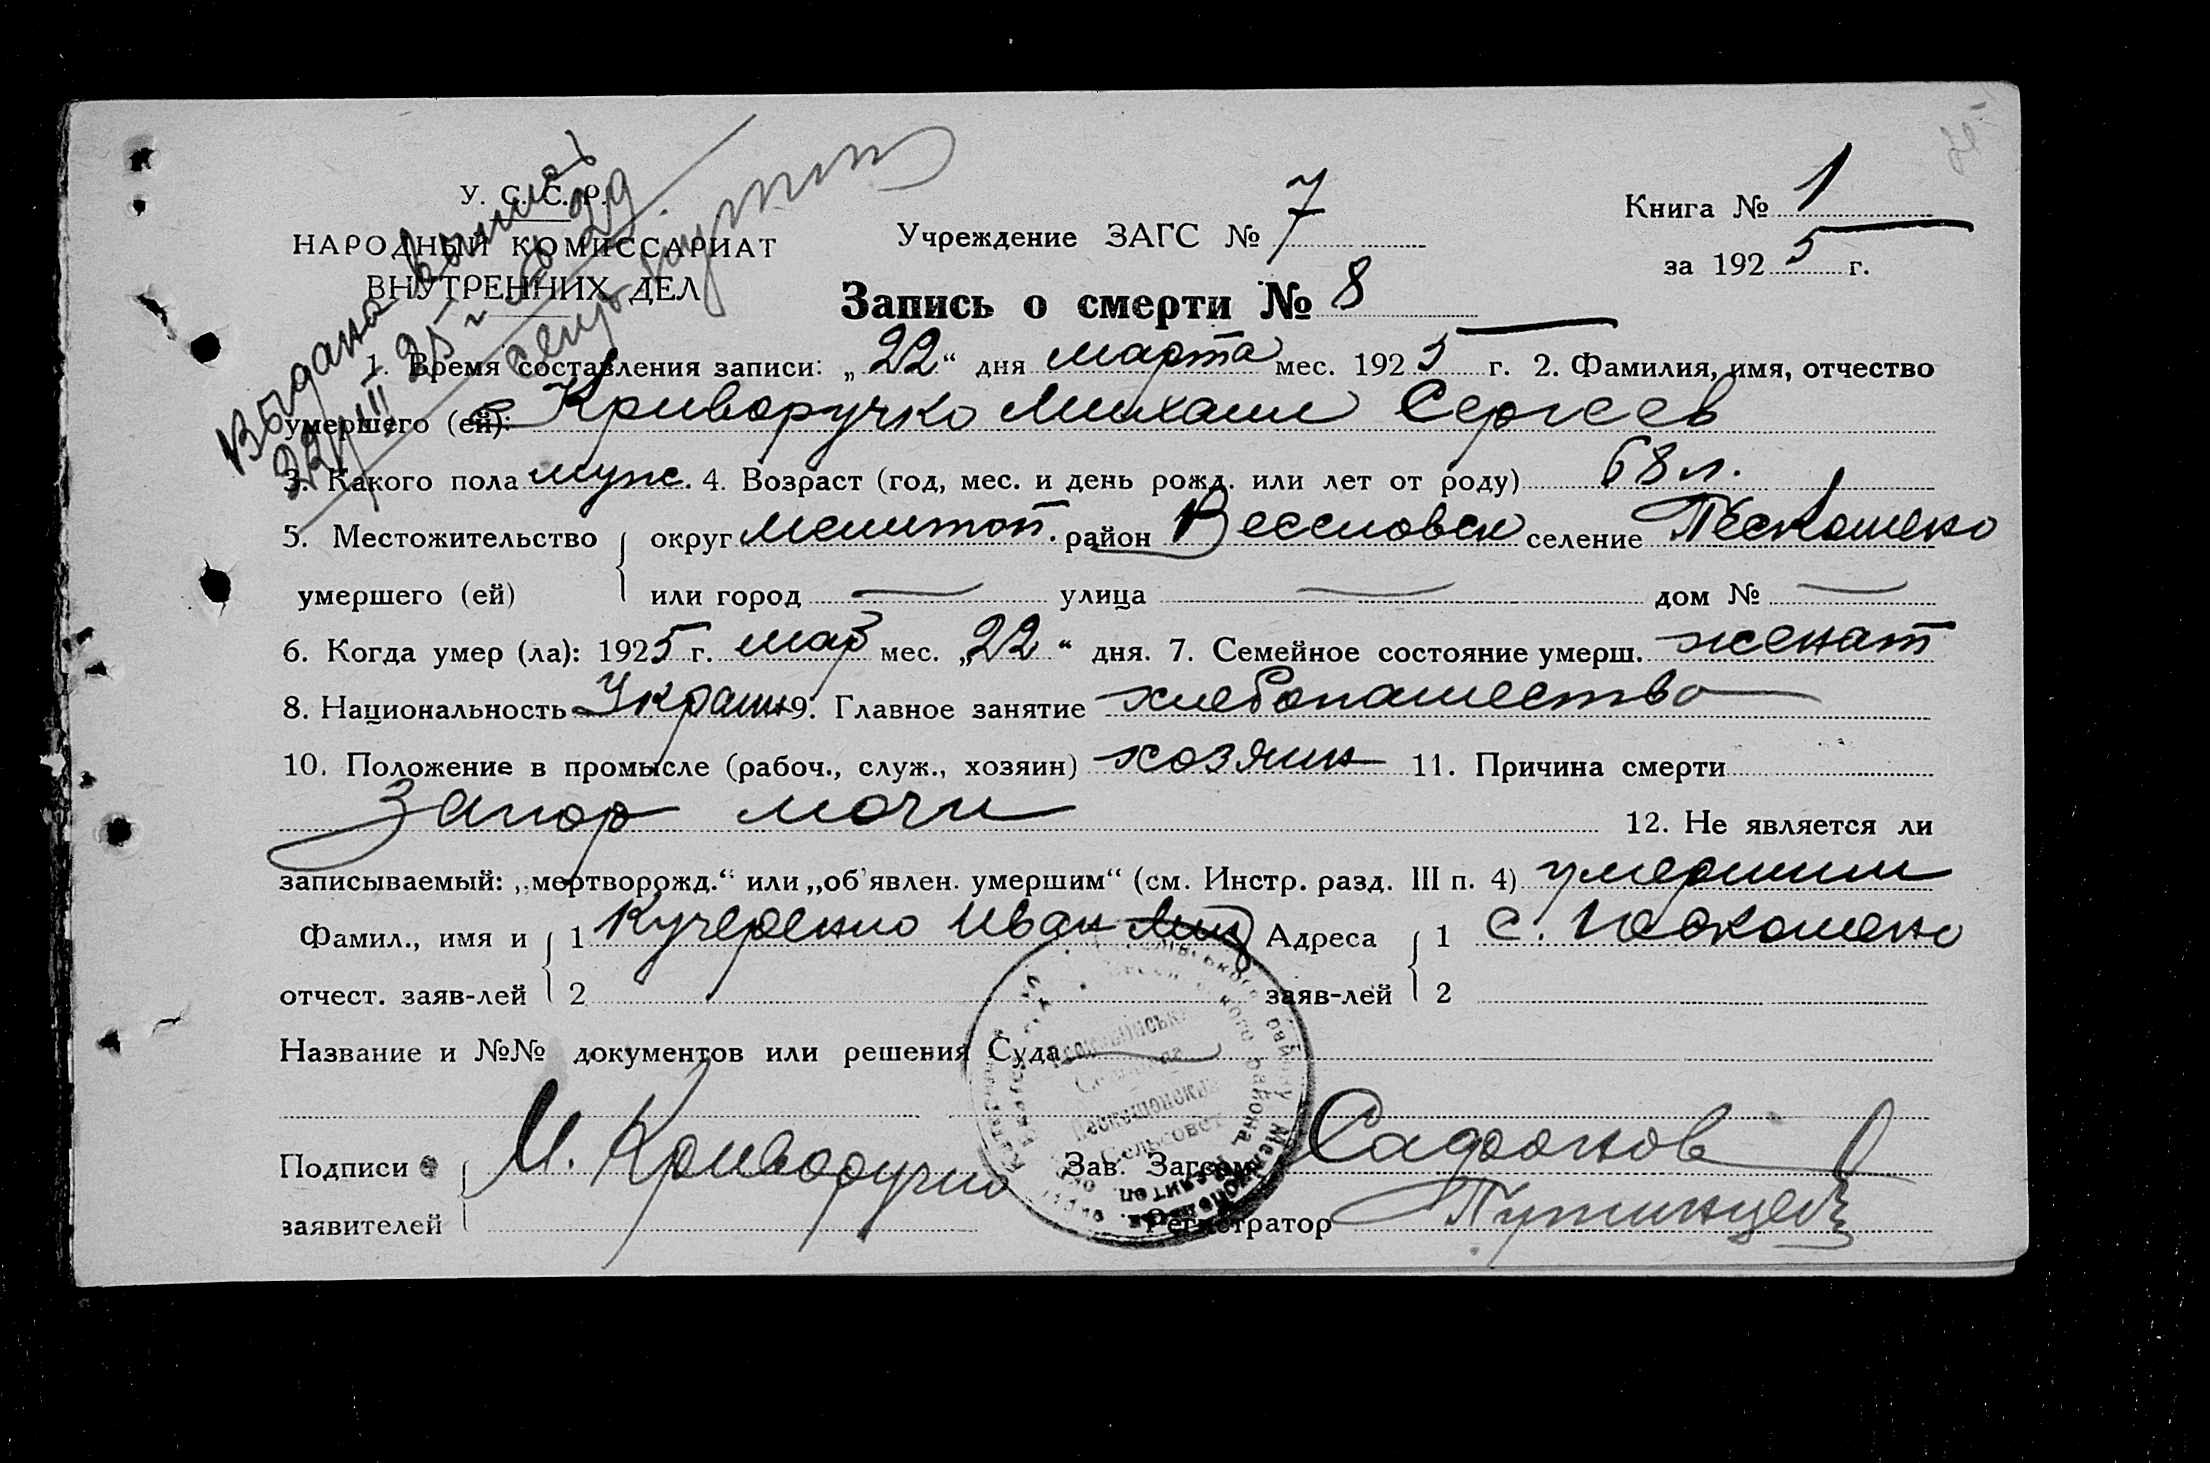 У. С. С. Р.
НАРОДНЫЙ КОМИССАРИАТ
ВНУТРЕННИХ ДЕЛ
Выдана выпись
22/III 25 г. № 29
Учреждение ЗАГС № 7
Книга № 1
за 1925 г.
Запись о смерти № 8
1. Время составления записи: „22“ дня марта мес. 1925 г. 2. Фамилия, имя, отчество
умершего (ей): Криворучко Михаил Сергеев
3. Какого пола муж. 4. Возраст (год, мес. и день рожд. или лет от роду) 68 л.
5. Местожительство округ Мелитоп. район Веселовск селение Пескошено
умершего (ей) или город — улица — дом № —
6. Когда умер (ла): 1925 г. мар мес. „22“ дня. 7. Семейное состояние умерш. женат
8. Национальность Украин 9. Главное занятие хлебопашество
10. Положение в промысле (рабоч., служ., хозяин) хозяин 11. Причина смерти
Запор мочи 12. Не является ли
записываемый: „мертворожд.“ или „об'явлен. умершим“ (см. Инстр. разд. III п. 4) умершим
Фамил., имя и 1 Кучеренко Иван Адреса 1 с. Пескошено
отчест. заяв-лей 2 заяв-лей 2
Название и №№ документов или решения Суда
Подписи И. Криворучко Зав. Загсом Сафонов
заявителей Регистратор Путинцев